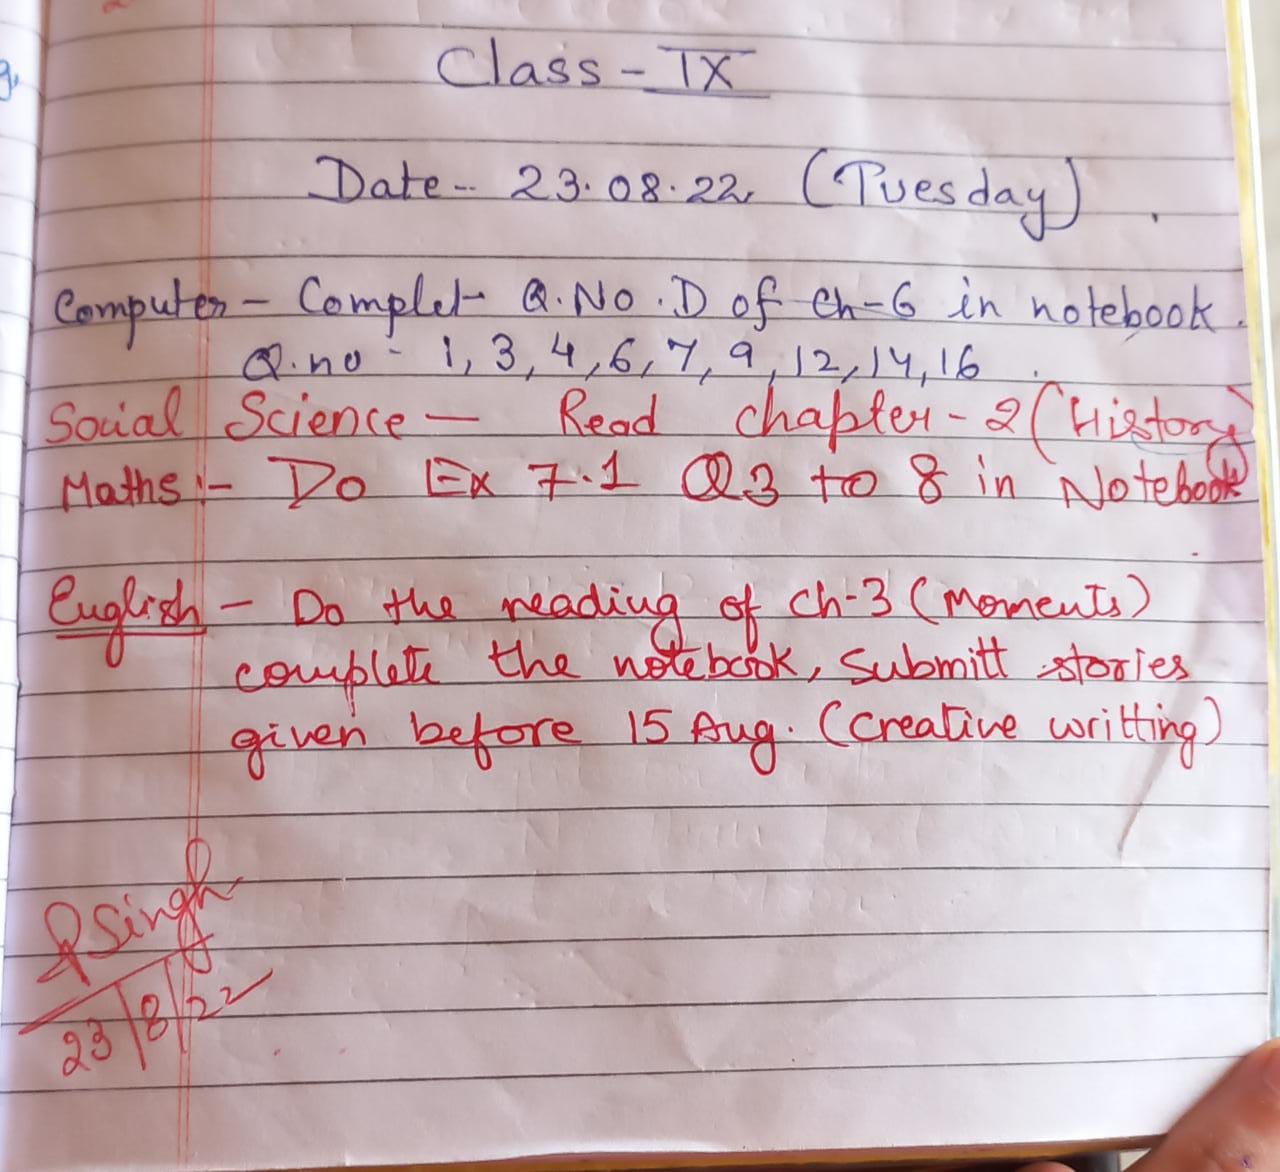 Class - IX
Date - 23.08.22 (Tuesday).
Computer - Complet Q.No.D of Ch-6 in notebook.
Q.no - 1, 3, 4, 6, 7, 9, 12, 14, 16.
Social Science - Read chapter - 2 (History)
Maths :- Do Ex 7.1 Q3 to 8 in Notebook
English - Do the reading of ch-3 (Moments)
complete the notebook, Submitt stories
given before 15 Aug. (creative writting)
Singh
23/8/22